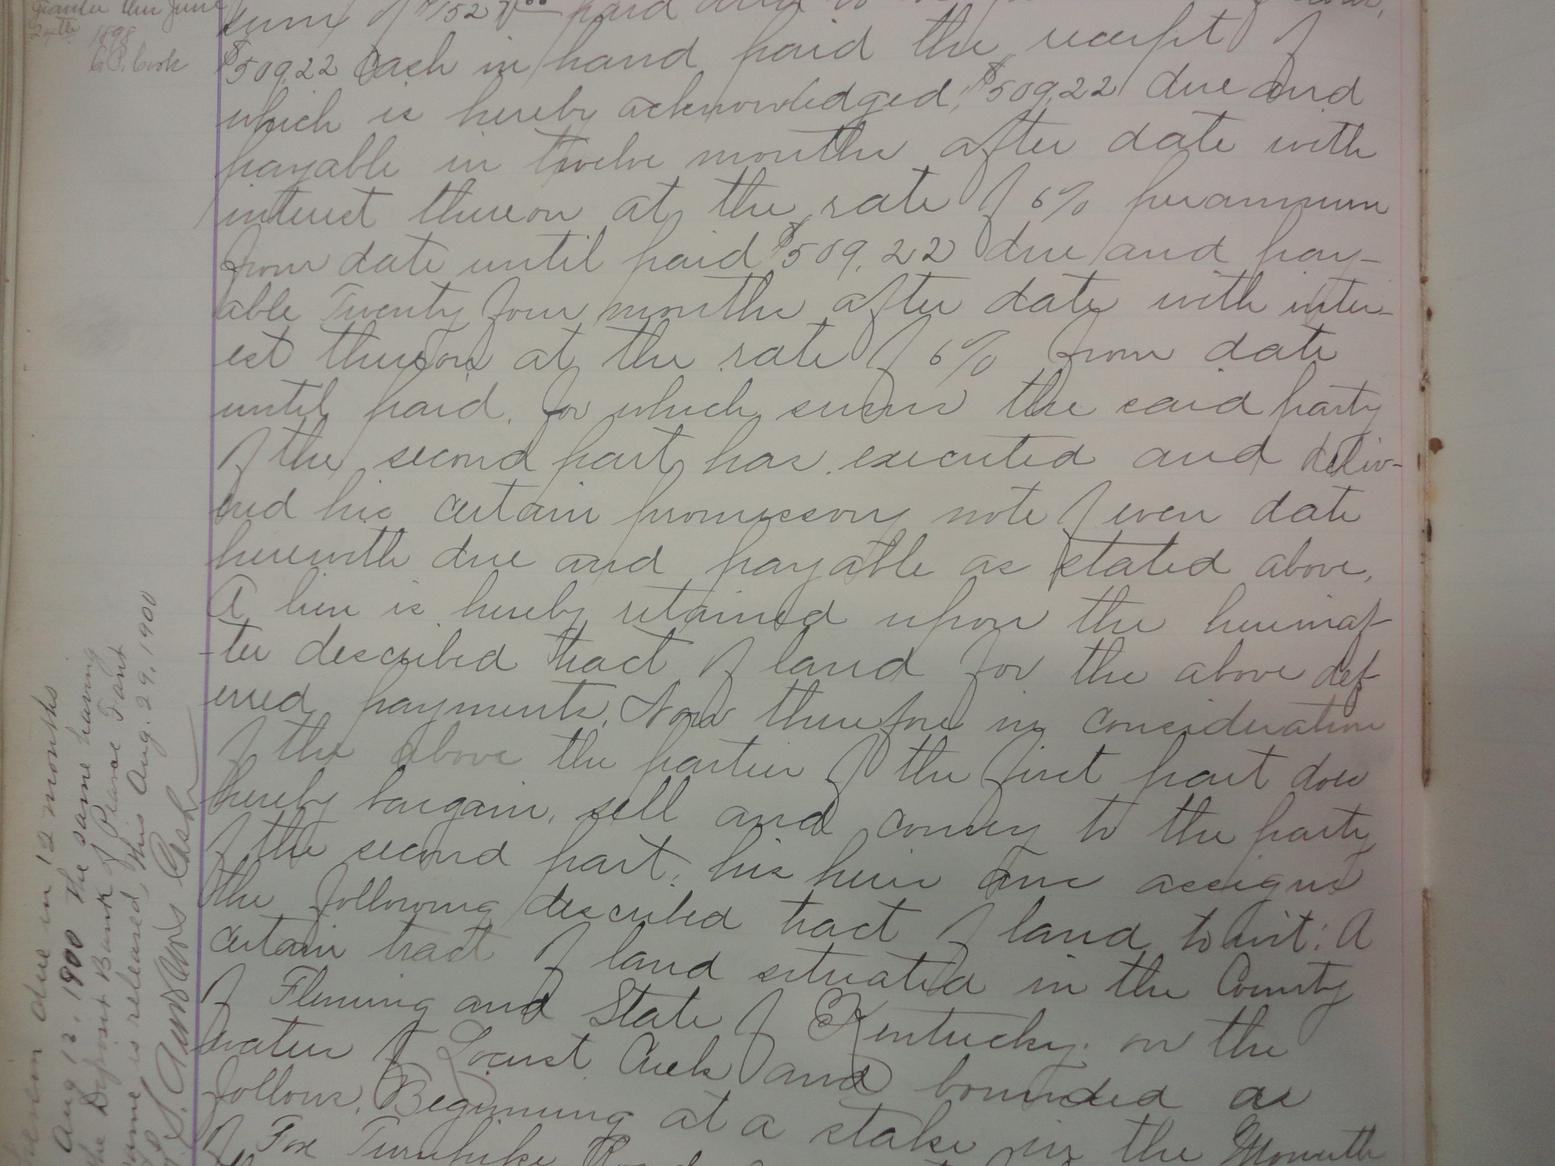 Grantee this June
24th 1898
sum of $1527.00 paid
$509.22 Cash in hand paid the receipt of
which is hereby acknowledged, $509.22 due and
payable in twelve months after date with
interest thereon at the rate of 6% per annum
from date until paid $509.22 due and pay-
able Twenty four months after date with inter-
est thereon at the rate of 6% from date
until paid. for which sums the said party
of the second part, has executed and deliv-
ered his certain promissory note of even date
herewith due and payable as stated above.
A lien is hereby retained upon the hereinaf-
-ter described tract of land for the above def-
erred payments. Now therefore in consideration
of the above the parties of the first part does
hereby bargain, sell and convey to the party
of the second part, his heirs and assigns
the following described tract of land, to wit: A
certain tract of land situated in the County
of Fleming and State of Kentucky. on the
waters of Locust Creek and bounded as
follows. Beginning at a stake in the Mouth
of Fox Turnpike Road
due in 12 months
Aug 12, 1900 the same having
the Deposit Bank of Pearce Fant
same is released this Aug. 29, 1900
Cash